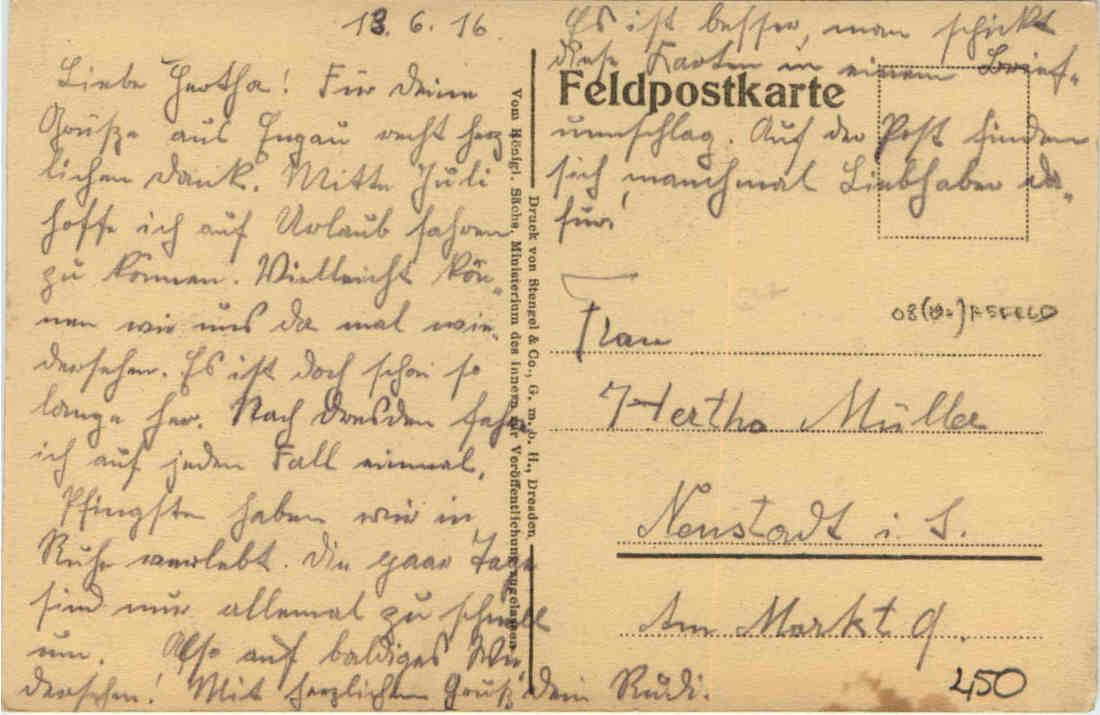 13. 6. 16.
Liebe Hertha! Für deine
Grüße aus recht herz
lichen Dank. Mitte Juli
hoffe ich auf Urlaub fahren
zu können. Vielleicht kön-
nen wir uns da mal wie-
dersehen. Es ist doch schon so
lange her. Nach Dresden fahre
ich auf jeden Fall einmal.
Pfingsten haben wir in
Ruhe verlebt. Die paar Tage
sind nur allemal zu schnell
um. Also auf baldiges Wie
dersehen! Mit herzlichem Gruß Dein Rudi.
Vom Königl. Sächs. Ministerium des Innern zur Veröffentlichung zugelassen.
Druck von Stengel & Co., G. m. b. H., Dresden
Es ist besser, man schickt
diese Karten in einem Brief-
umschlag. Auf der Post finden
sich manchmal Liebhaber da-
für!
Feldpostkarte
Frau
Hertha Müller
Neustadt i. S.
Am Markt 9.
450